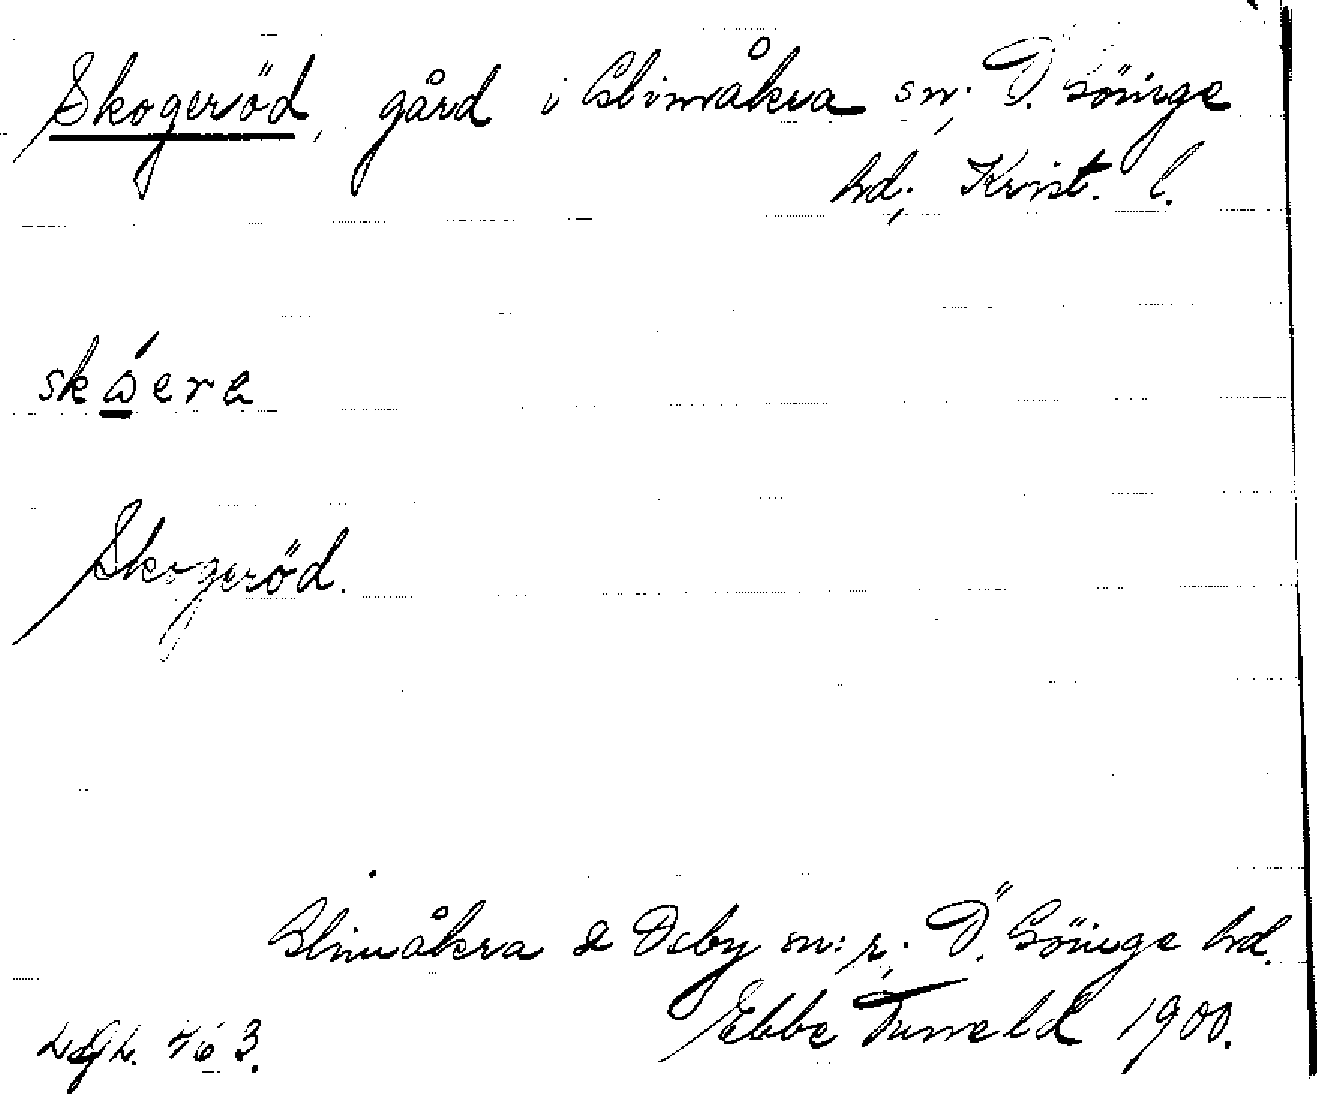 Skogeröd, gård i Glimåkra sn, Ö. Göinge
hd, Krist. l.
skåera
Skogeröd.
Glimåkra & Örby sn:r. Ö. Göinge hd.
Ebbe Tuneld 1900.